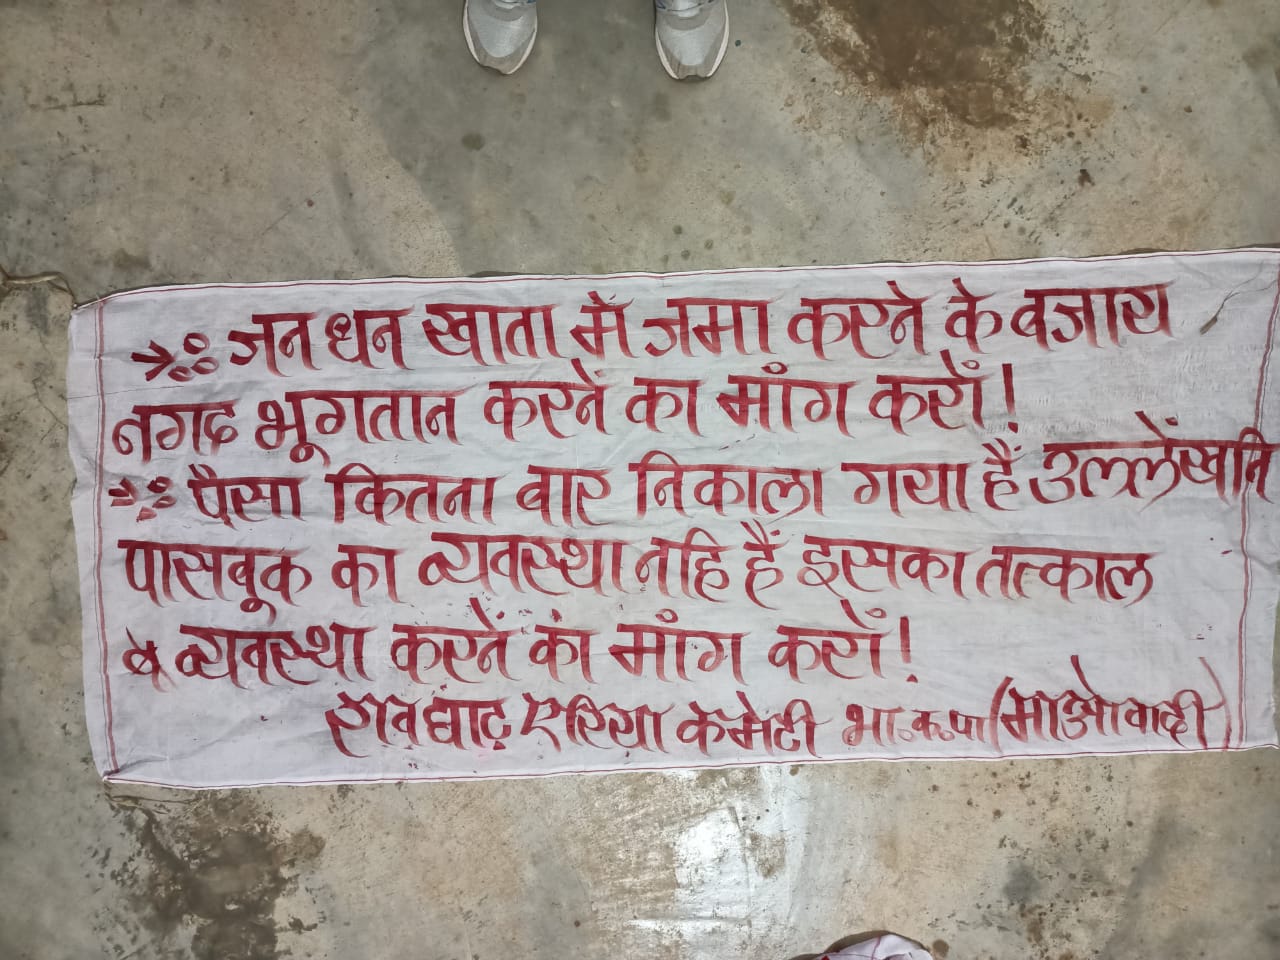 जन धन खाता में जमा करने के बजाय
नगद भूगतान करनें का मांग करों!
पैसा कितना बार निकाला गया हैं उल्लेंखनि
पासबूक का व्यवस्था नहि हैं इसका तत्काल
व्यवस्था करनें का मांग करों!
रावघाट एरिया कमेटी भा.क.पा (माओवादी)